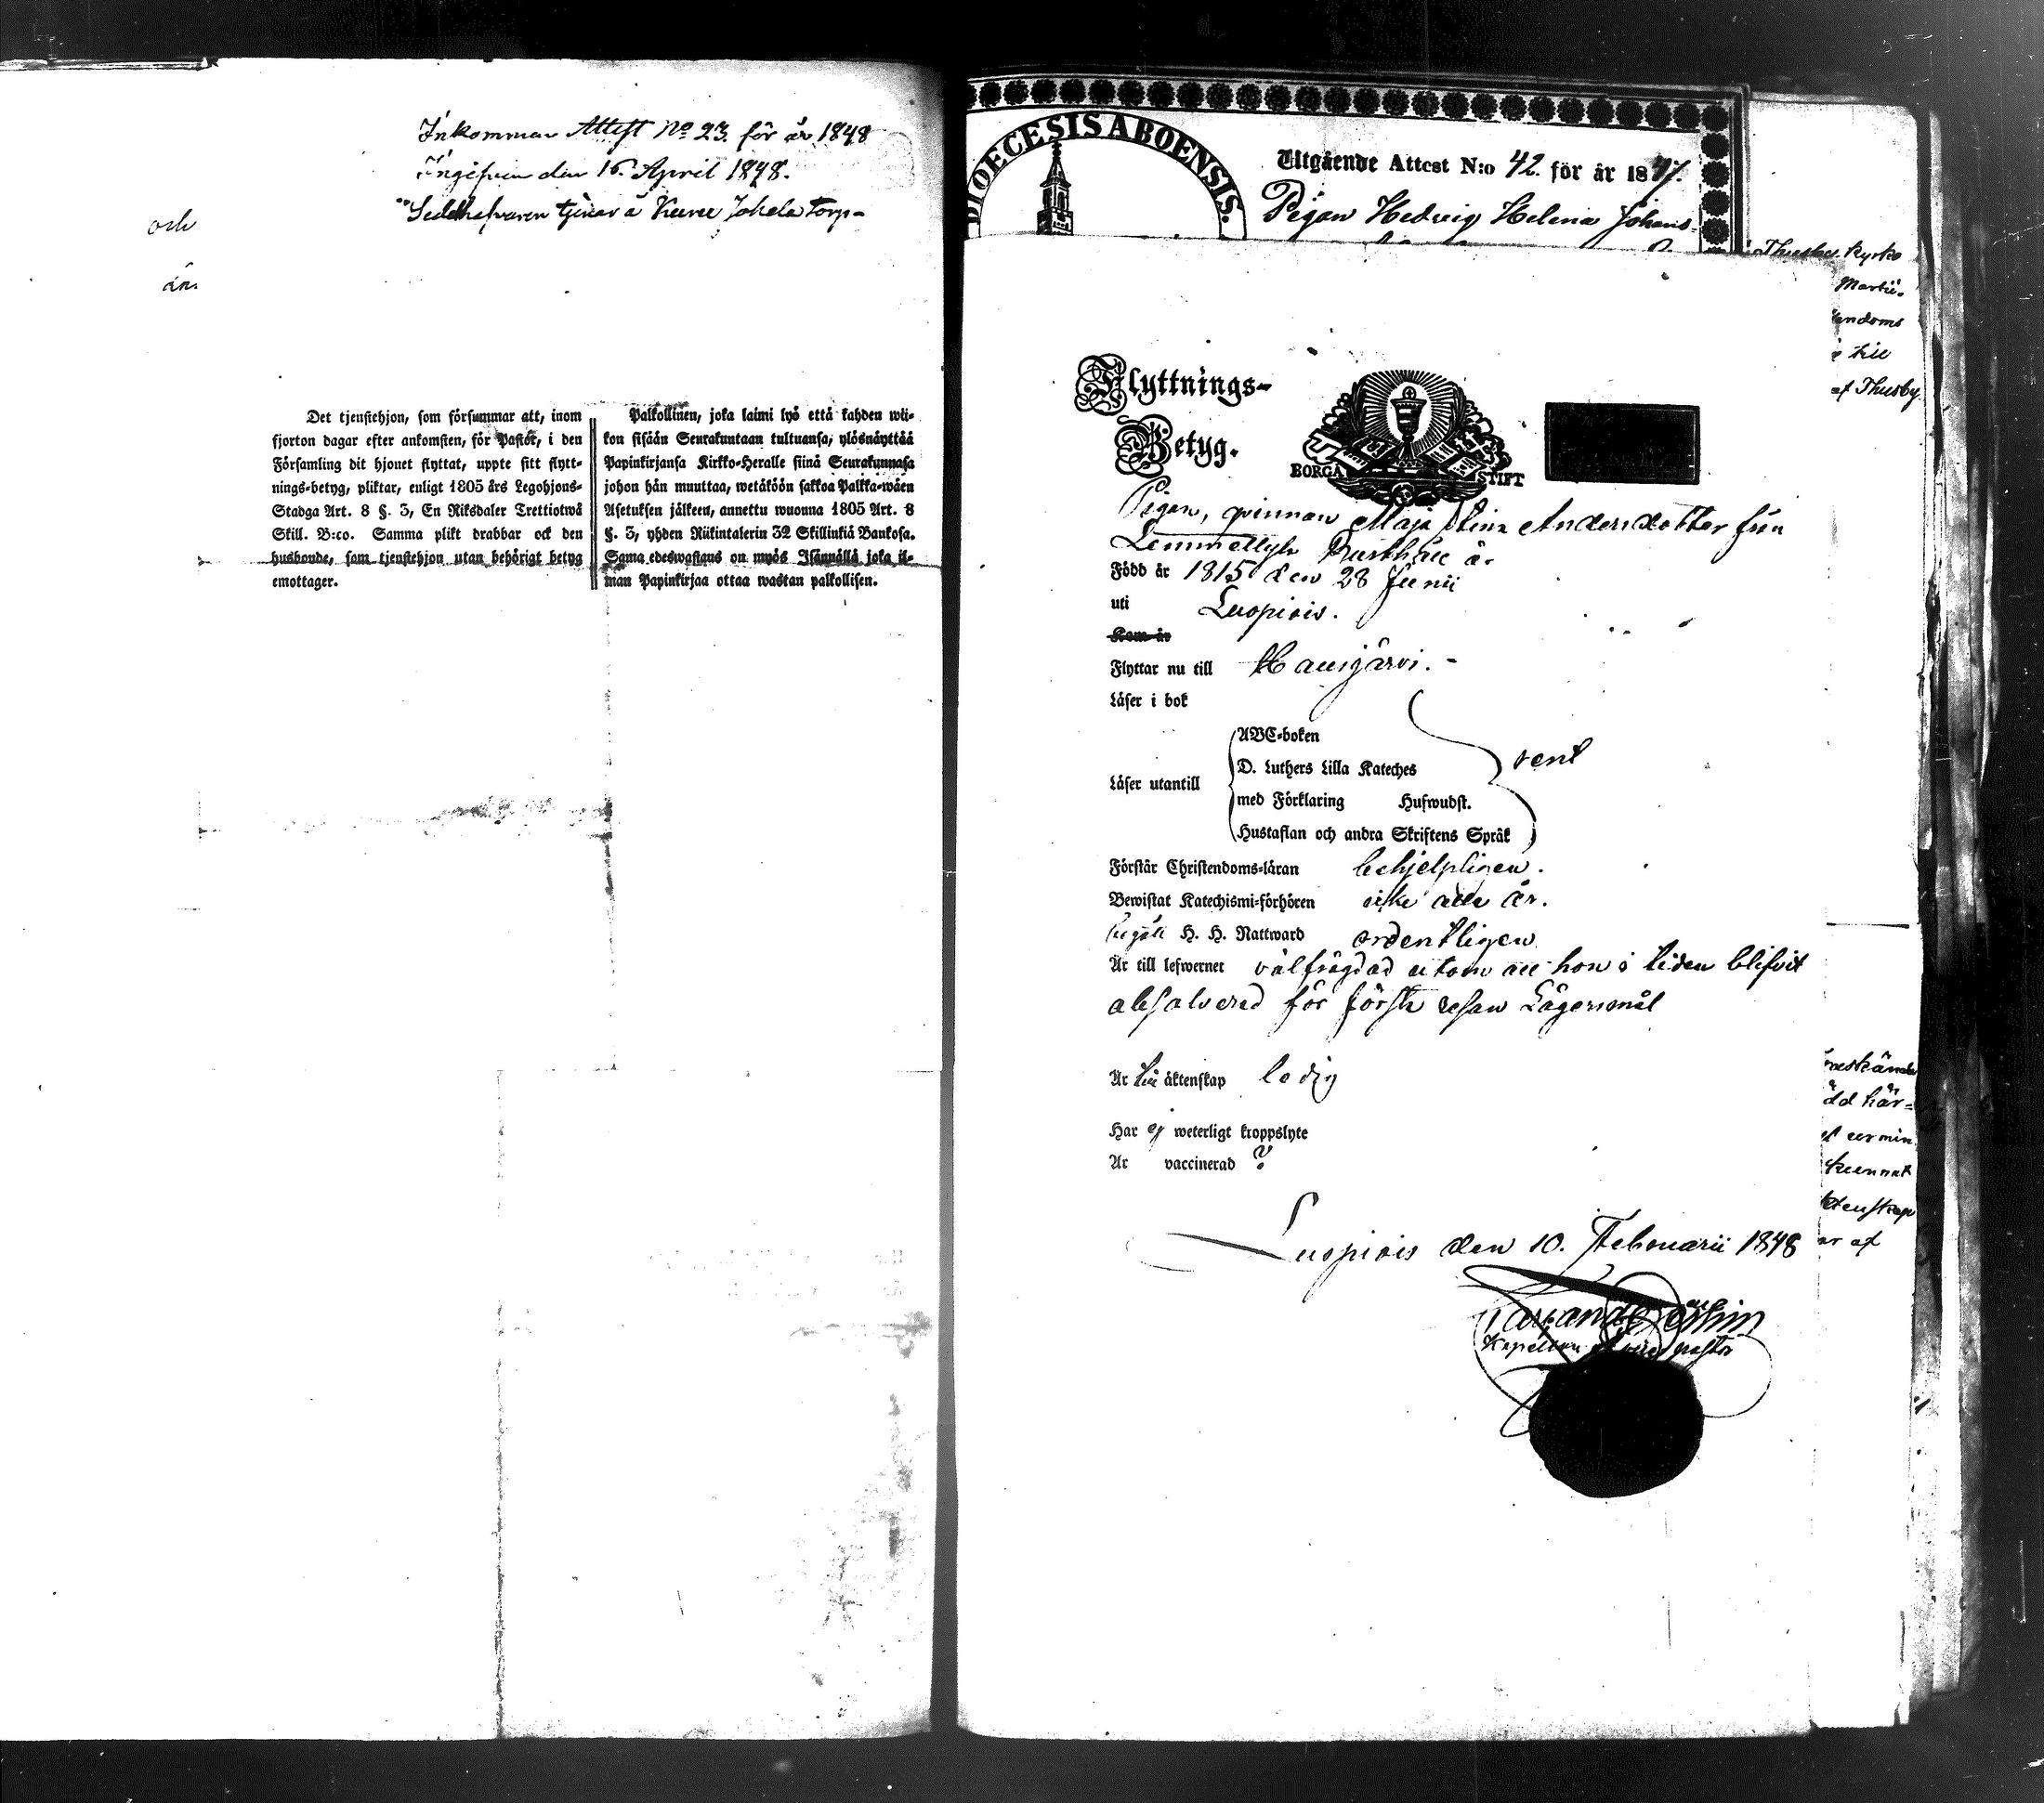 och
än
Inkommen Attest No 23. för år 1848
Ingifven den 16. April 1848.
Sedelhafvaren tjenar å Torp
Det tjenstehjon, som försummar att, inom
fjorton dagar efter ankomsten, för Pastor, i den
Församling dit hjonet flyttat, uppte sitt flytt-
nings-betyg, pliktar, enligt 1805 års Legohjons-
Stadga Art. 8 §. 3, En Riksdaler Trettiotwå
Skill. B:co. Samma plikt drabbar ock den
husbonde, som tjenstehjon utan behörigt betyg
emottager.
Palkollinen, joka laimi lyö että kahden wii-
kon sisään Seurakuntaan tultuansa, ylösnäyttää
Papinkirjansa Kirkko-Heralle siinä Seurakunnasa
johon hän muuttaa, wetäköön sakkoa Palkka-wäen
Asetuksen jälkeen, annettu wuonna 1805 Art. 8
§. 3, yhden Riikintalerin 32 Skillinkiä Bankosa.
Sama edeswastaus on myös Isännällä joka il-
man Papinkirjaa ottaa wastan palkollisen.
DIOECESIS ABOENSIS.
Utgående Attest N:o 42. för år 1847.
Pigan Hedvig Helena Johans-
Thusby kyrko
Martii.
endoms
till
af Thusby.
Flyttnings-
Betyg.
BORGÅ STIFT
Pigan, qvinnan Maja Stina Andersdotter från
Född år 1815 den 28 Junii
uti Luopiois.
Kom år
Flyttar nu till Hausjärvi.
Läser i bok
ABC-boken
D. Luthers Lilla Kateches
rent
Läser utantill
med Förklaring Hufwudst.
Hustaflan och andra Skriftens Språk
Förstår Christendoms-läran behjelpligen.
Bewistat Katechismi-förhören icke alla år.
H. H. Nattward ordentligen
Är till lefwernet välfrägdad utom att hon i tiden blifvit
absolverad för första resan Lägersmål
Är till äktenskap ledig
Har ej weterligt kroppslyte
Är vaccinerad ?
Luopiois den 10. Februarii 1848
Kapellan pastor